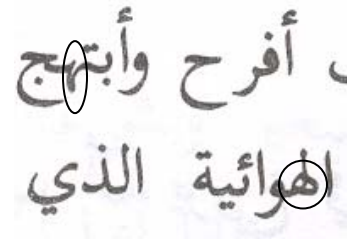 أفرح وأبتهج
الهوائية الذي